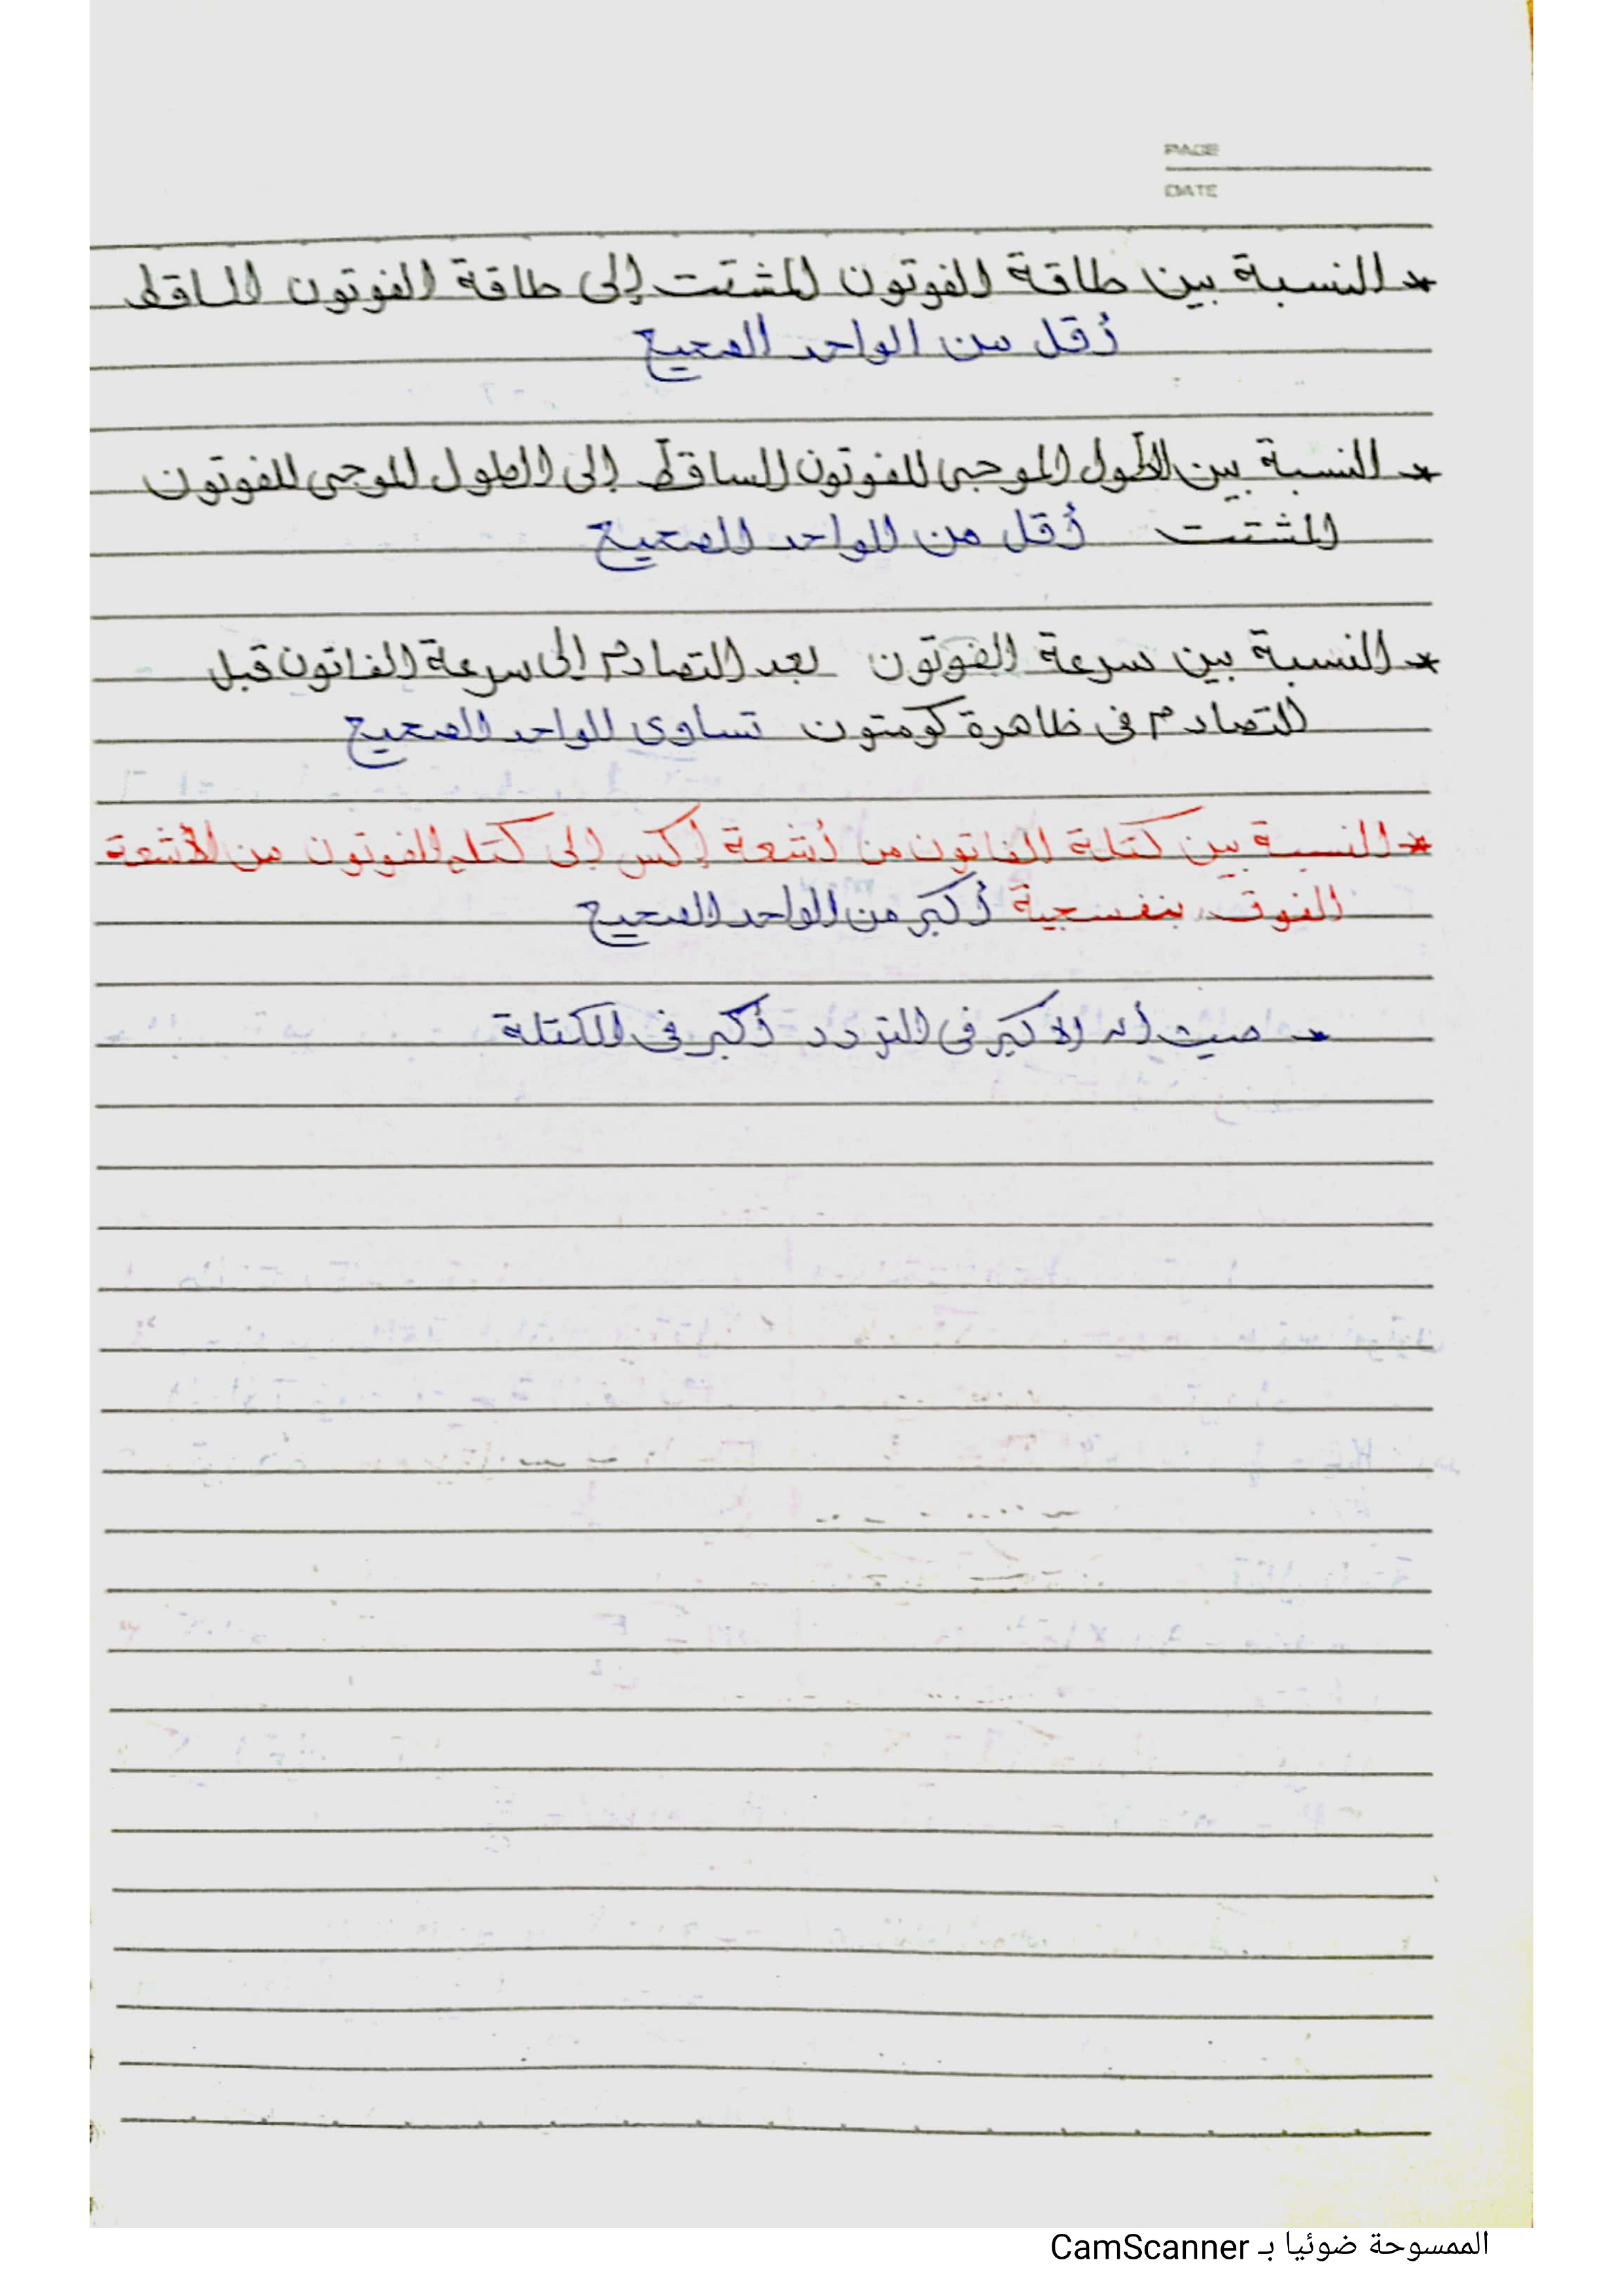 PAGE
DATE
* النسبة بين طاقة الفوتون المشتت إلى طاقة الفوتون الساقط
أقل من الواحد الصحيح
* النسبة بين الطول الموجى للفوتون الساقط إلى الطول الموجى للفوتون
المشتت أقل من الواحد الصحيح
* النسبة بين سرعة الفوتون بعد التصادم إلى سرعة الفاتون قبل
التصادم فى ظاهرة كومتون تساوى الواحد الصحيح
* النسبة بين كتلة الفاتون من أشعة إكس إلى كتله الفوتون من الأشعة
الفوق بنفسجية أكبر من الواحد الصحيح
* حيث أن الاكبر فى التردد أكبر فى الكتلة
الممسوحة ضوئيا بـ CamScanner